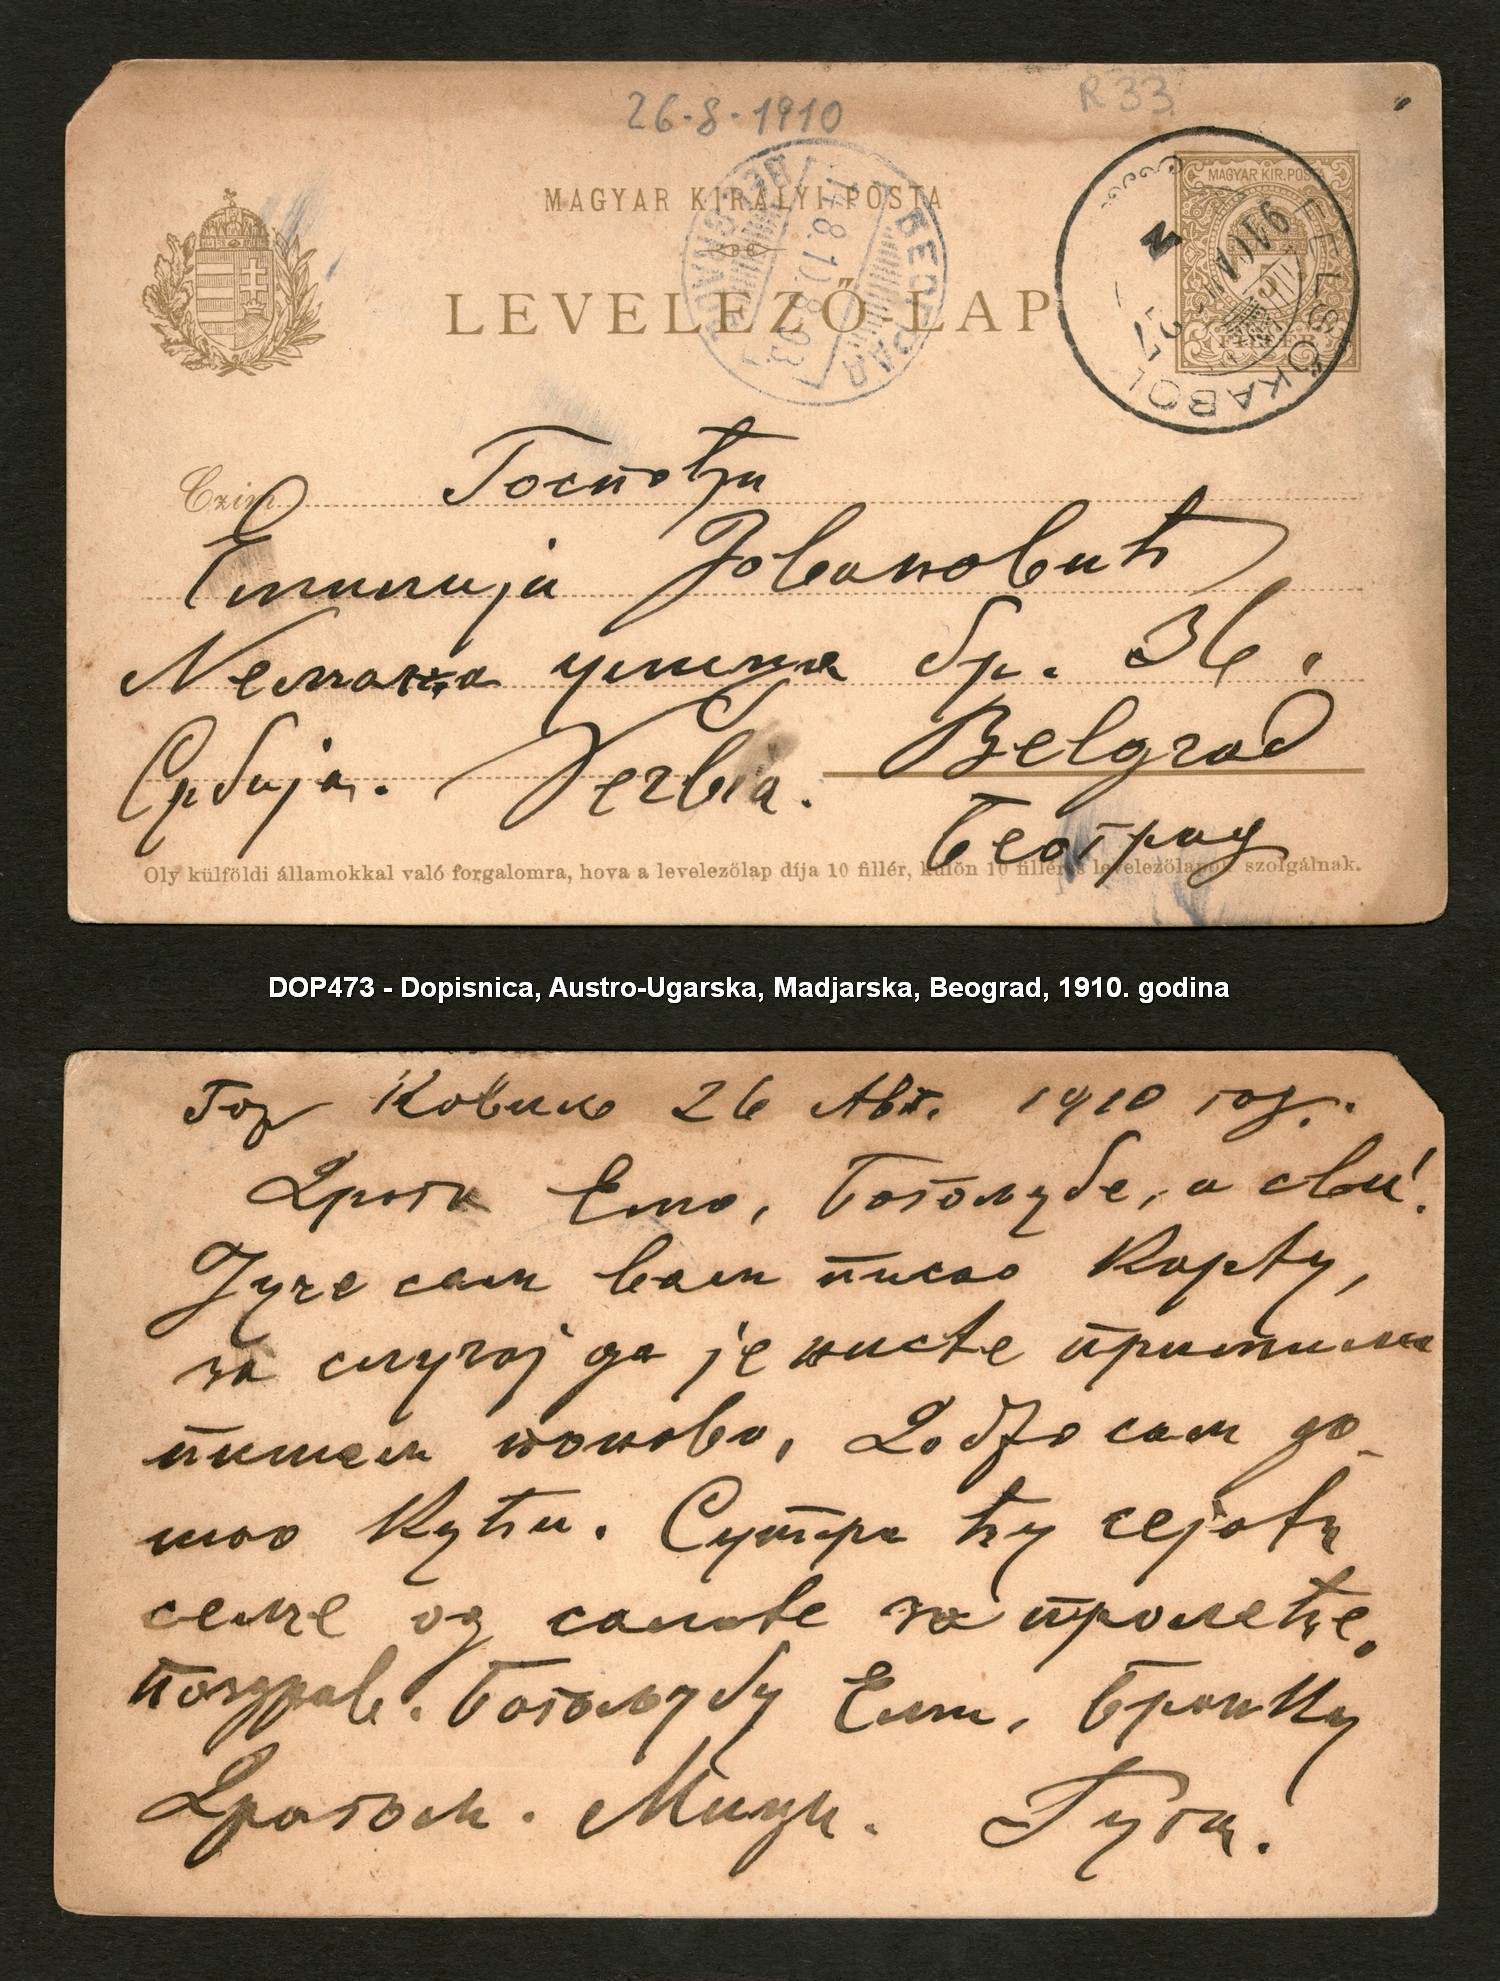 26-8-1910
R 33
MAGYAR KIRÁLYI POSTA
MAGYAR KIR. POSTA
LEVELEZŐ-LAP
FELSŐKABOL
БЕОГРАД
BELGRADE
Czím
Госпођи
Емилија Јовановић
Немања улица бр. 36.
Србија. Serbia. Belgrad
Београд
Oly külföldi államokkal való forgalomra, hova a levelezőlap díja 10 fillér, külön 10 filléres levelezőlapok szolgálnak.
DOP473 - Dopisnica, Austro-Ugarska, Madjarska, Beograd, 1910. godina
Гор Ковиљ 26 Авг. 1910 год.
Драга Емо, Богољубе, и сви!
Јуче сам вам писао карту,
за случај да је нисте примили
пишем поново, Добро сам до-
шао кући. Сутра ћу сејати
семе од салате за пролеће.
поздрав. Богољубу Еми, Бранку
Драгом. Мици. Гута.